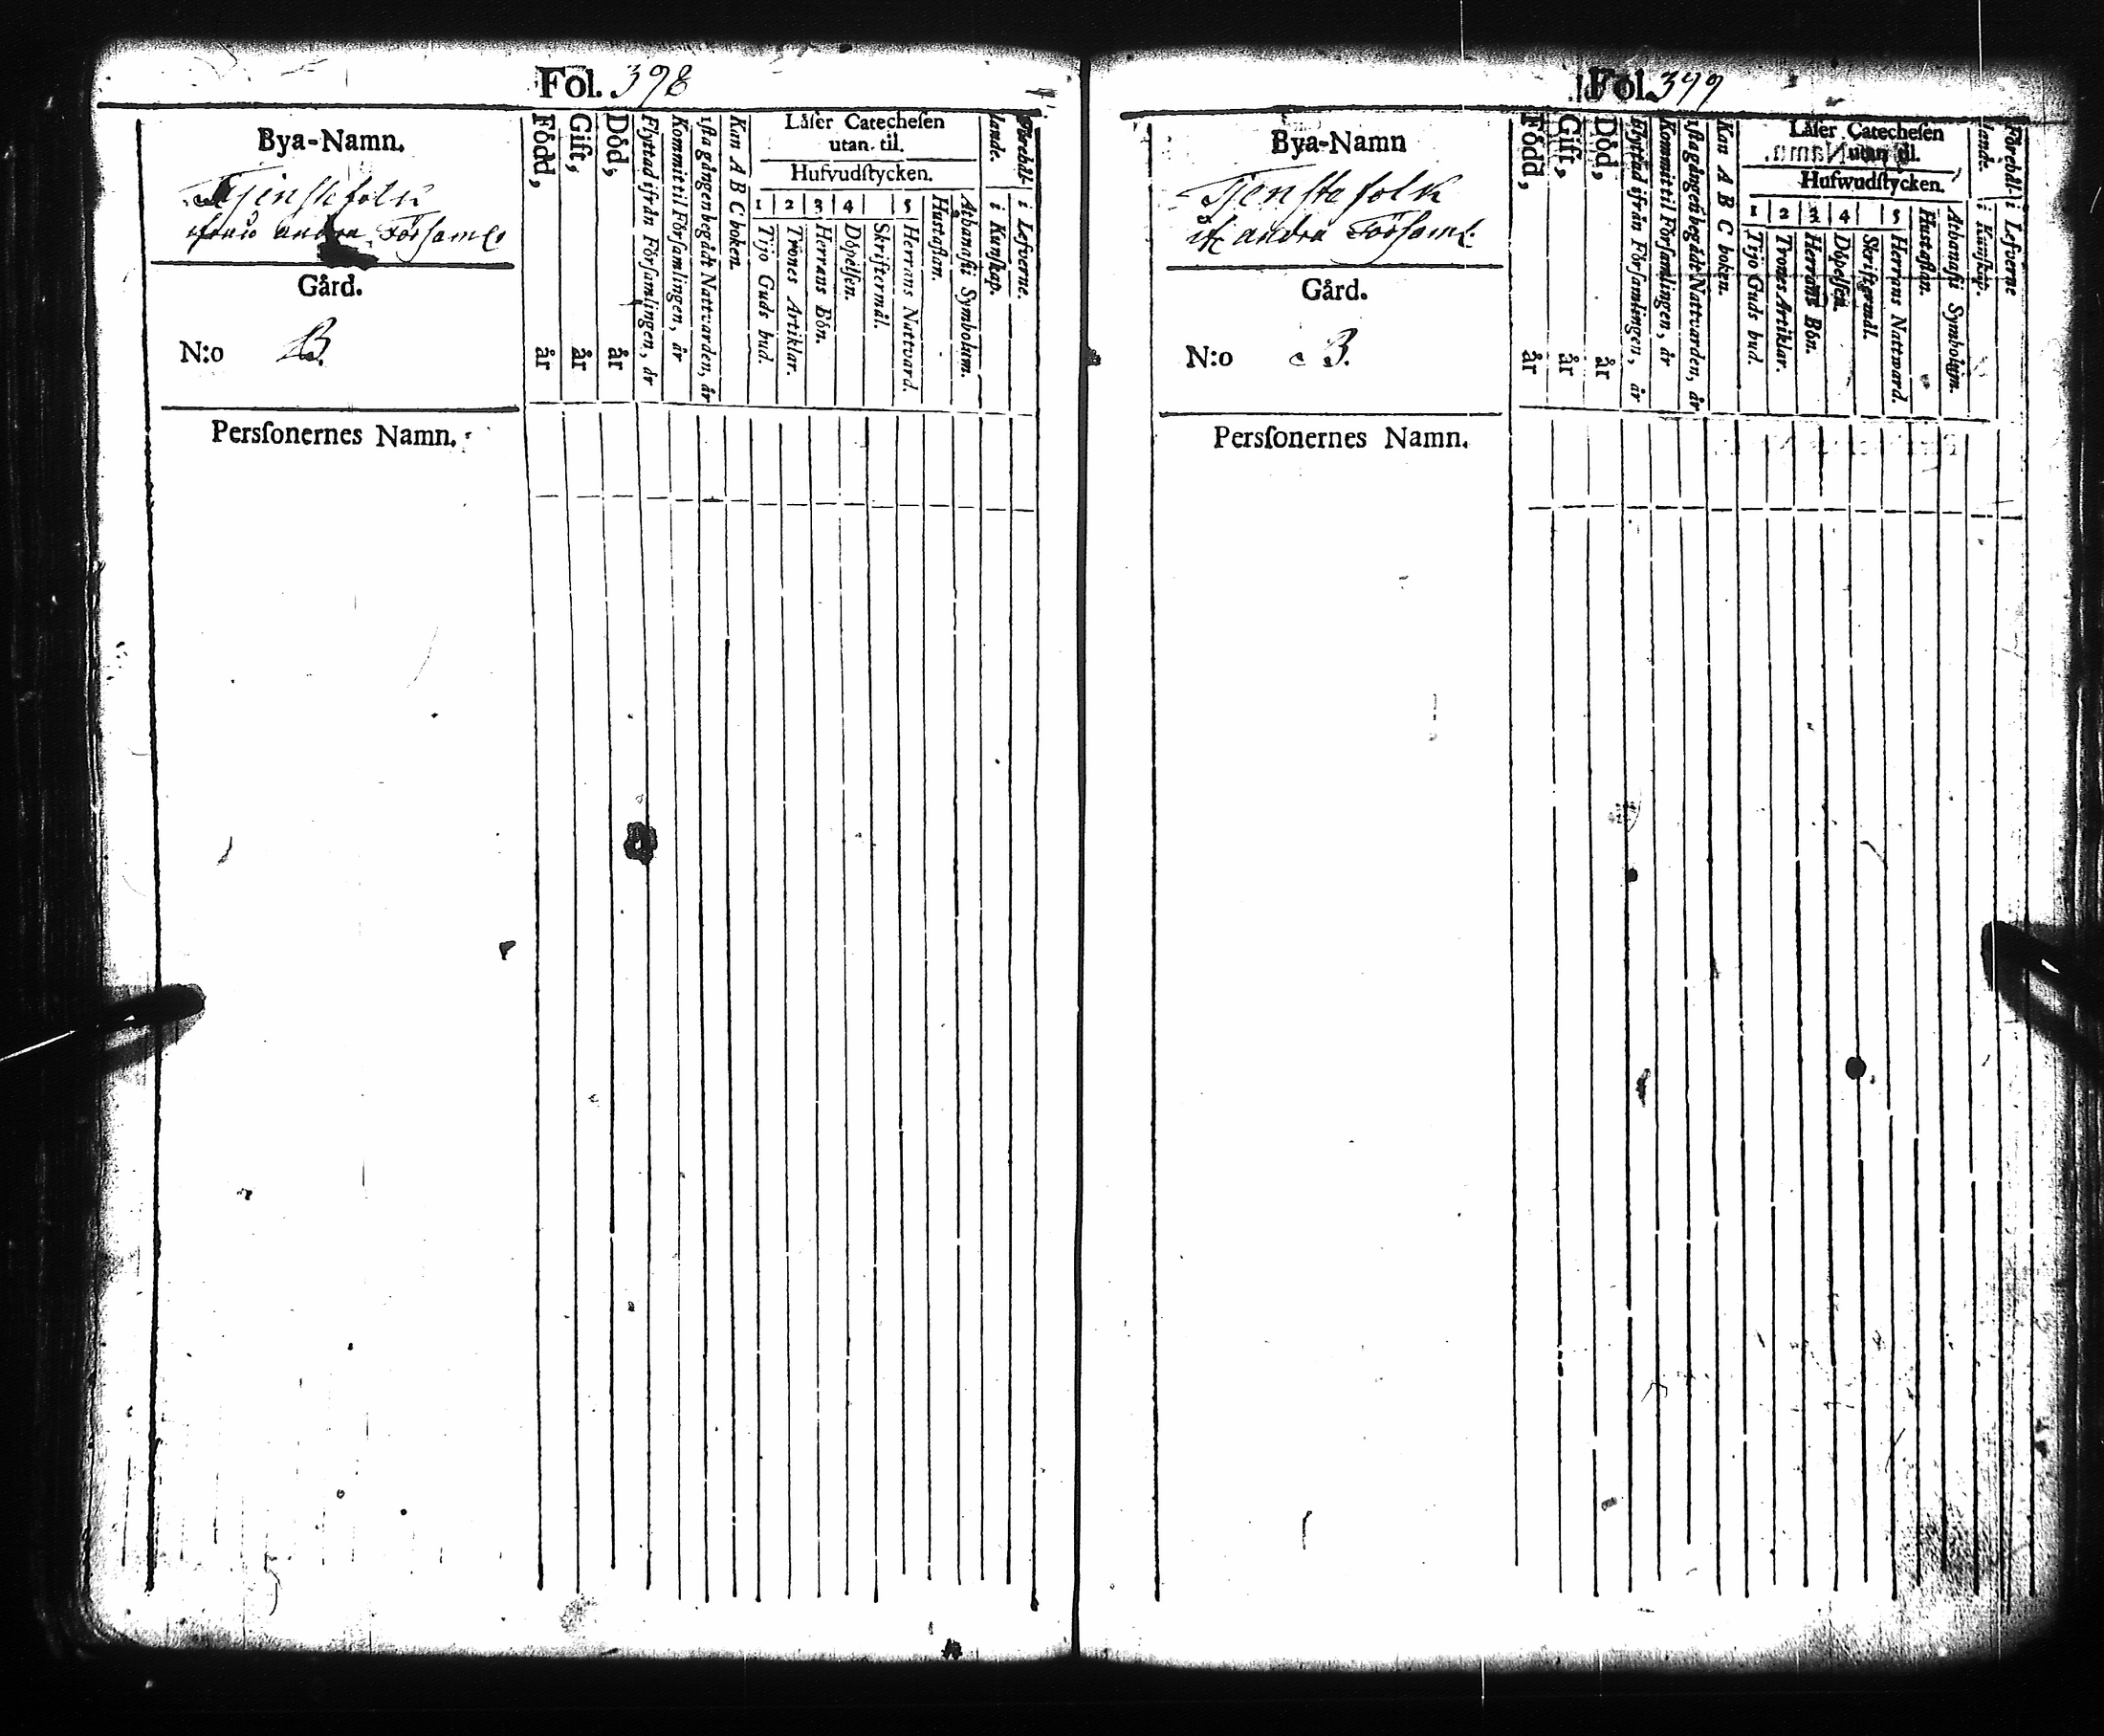 Fol. 398
Bya-Namn.
Tjenstefolk
ifrån andra Församl.
Gård.
N:o B.
Persſonernes Namn.
Född, år
Gift, år
Död, år
Flyttad ifrån Förſamlingen, år
Kommit til Förſamlingen, år
ſta gången begådt Nattvarden, år
Kan A B C boken.
Låſer Catecheſen
utan til.
Hufvudſtycken.
1 2 3 4 5
Tijo Guds bud.
Trones Artiklar.
Herrans Bön.
Döpelſen.
Skriftermål.
Herrans Nattvard.
Huſtaflan.
Athanaſii Symbolum.
Förehål-
lande.
i Kunſkap.
i Lefverne.
Fol. 399
Bya-Namn
Tjenste folk
andra Församl.
Gård.
N:o B.
Persſonernes Namn.
Född, år
Gift, år
Död, år
Flyttad ifrån Förſamlingen, år
Kommit til Förſamlingen, år
ſta gången begådt Nattvarden, år
Kan A B C boken.
Låſer Catecheſen
utan til.
Hufwudſtycken.
1 2 3 4 5
Tijo Guds bud.
Trones Artiklar.
Herrans Bön.
Döpelſen.
Skriftermål.
Herrans Nattward.
Huſtaflan.
Athanaſii Symbolum.
Förehål-
lande.
i Kunſkap.
i Lefverne